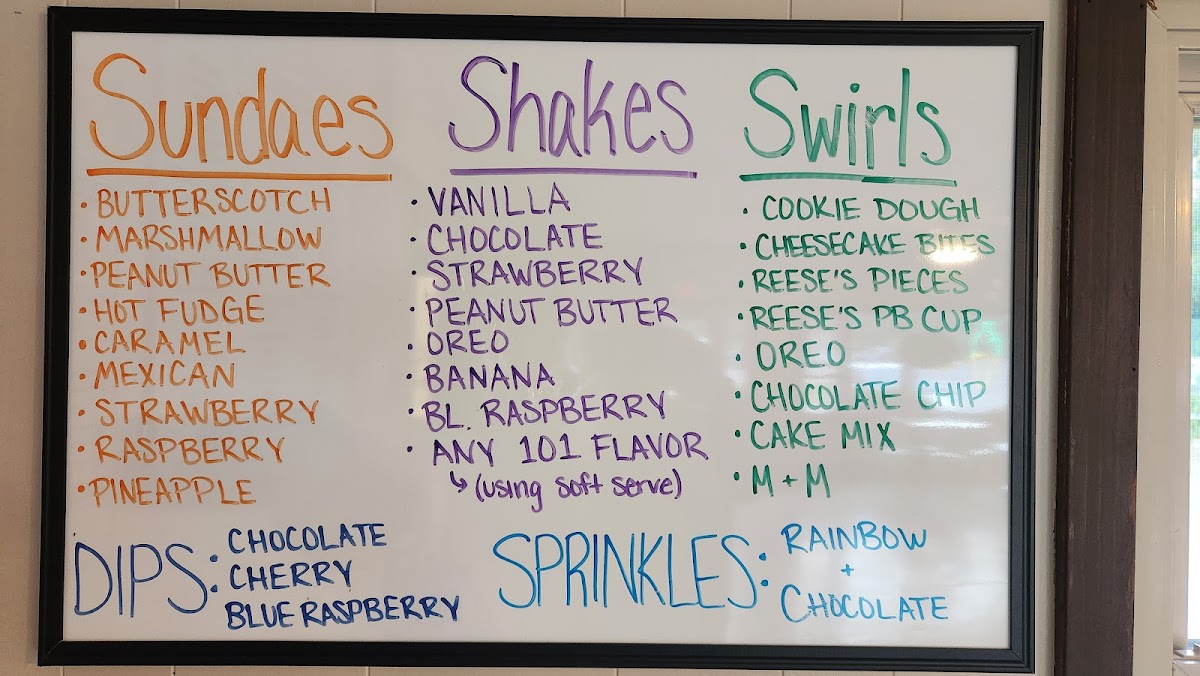 Sundaes
• BUTTERSCOTCH
• MARSHMALLOW
• PEANUT BUTTER
• HOT FUDGE
• CARAMEL
• MEXICAN
• STRAWBERRY
• RASPBERRY
• PINEAPPLE
Shakes
• VANILLA
• CHOCOLATE
• STRAWBERRY
• PEANUT BUTTER
• OREO
• BANANA
• BL. RASPBERRY
• ANY 101 FLAVOR
↳ (using soft serve)
Swirls
• COOKIE DOUGH
• CHEESECAKE BITES
• REESE'S PIECES
• REESE'S PB CUP
• OREO
• CHOCOLATE CHIP
• CAKE MIX
• M + M
DIPS:
CHOCOLATE
CHERRY
BLUE RASPBERRY
SPRINKLES:
RAINBOW
+
CHOCOLATE